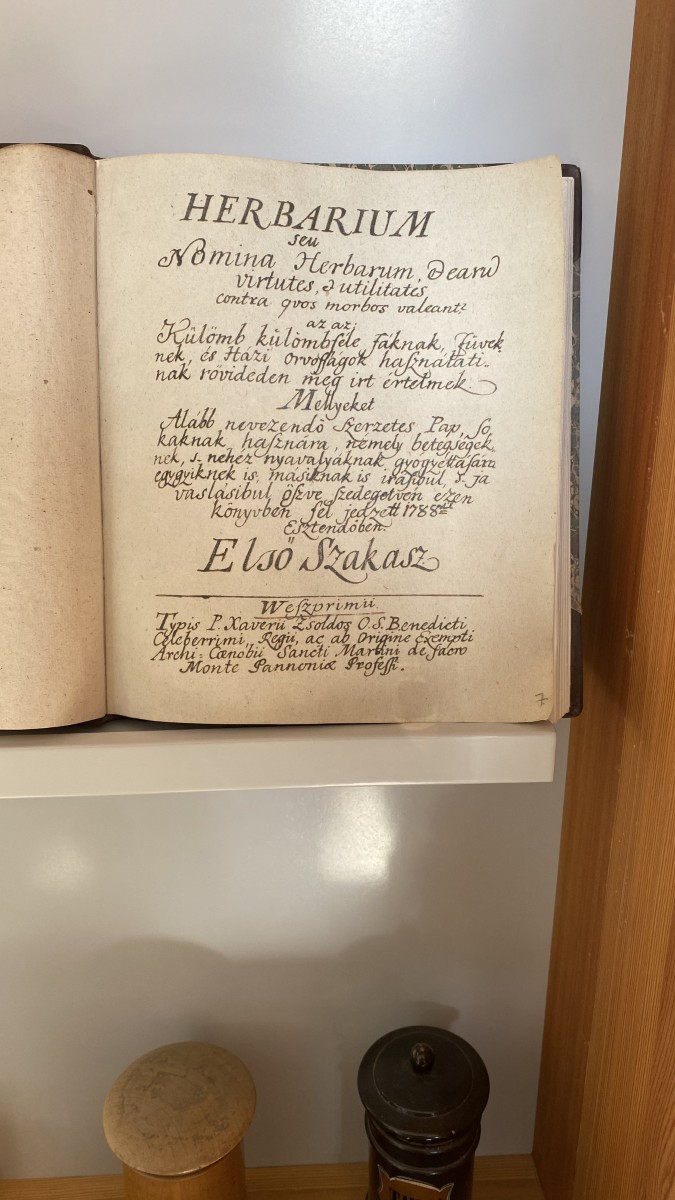 HERBARIUM
seu
Nomina Herbarum, Dearū
virtutes, & utilitates
contra qvos morbos valeant?
az az;
Külömb külömbféle Fáknak, Füvek
nek, és Házi orvosságok használati-
nak rövideden meg irt értelmek.
Mellyeket
Alább nevezendö Szerzetes Pap, so,
kaknak hasznára, nemely betegségek,
nek, s- nehez nyavalyáknak gyógyettására
egygyiknek is, másiknak is irásibul, s- ja
vaslásibul öszve szedegetvén ezen
könyvben fel jedzett 1788
Esztendöben.
Elsö Szakasz
Weszprimii.
Typis P. Xaverii Zsoldos O.S. Benedicti
Celeberrimi, Regii, ac ab Origine Exempti
Archi-Cœnobii Sancti Martini de sacro
Monte Pannoniæ Professi.
7